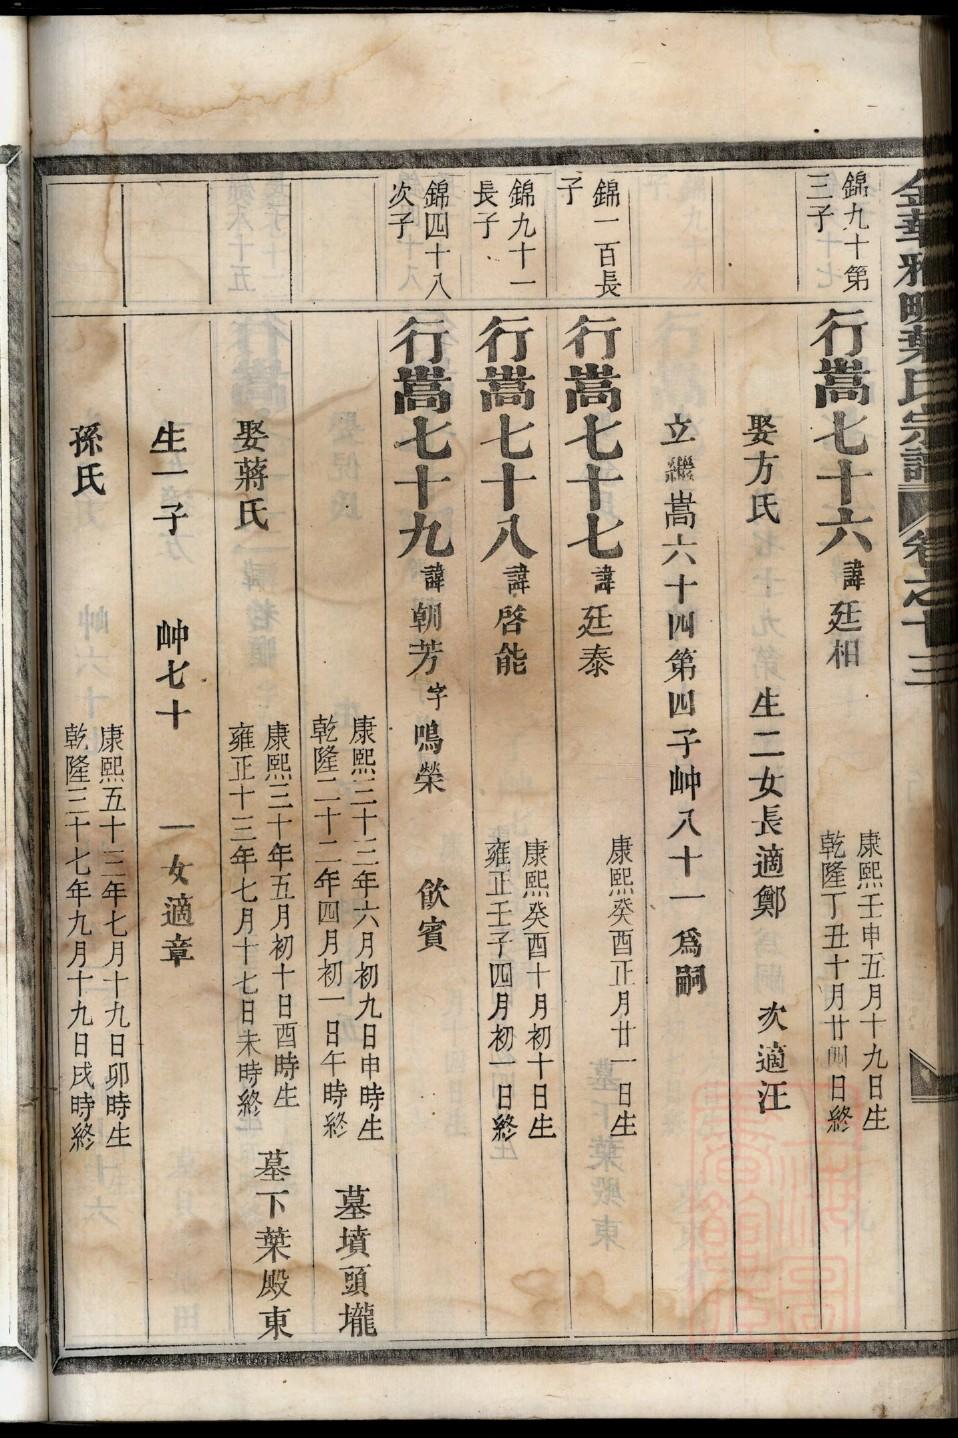 金華雅畈葉氏宗譜 卷之十三
錦九十第三子
行嵩七十六 諱廷相 康熙壬申五月十九日生 乾隆丁丑十月廿四日終
娶方氏 生二女長適鄭 次適汪
立繼嵩六十四第四子岫八十一為嗣
錦一百長子
行嵩七十七 諱廷泰 康熙癸酉正月廿一日生
錦九十一長子
行嵩七十八 諱啓能 康熙癸酉十月初十日生 雍正壬子四月初一日終
錦四十八次子
行嵩七十九 諱朝芳 字鳴榮 飲賓
康熙三十三年六月初九日申時生 乾隆二十二年四月初一日午時終 墓墳頭壠
娶蔣氏 康熙三十年五月初十日酉時生 雍正十三年七月十七日未時終 墓下葉殿東
生一子 岫七十 一女適章
孫氏 康熙五十三年七月十九日卯時生 乾隆三十七年九月十九日戌時終